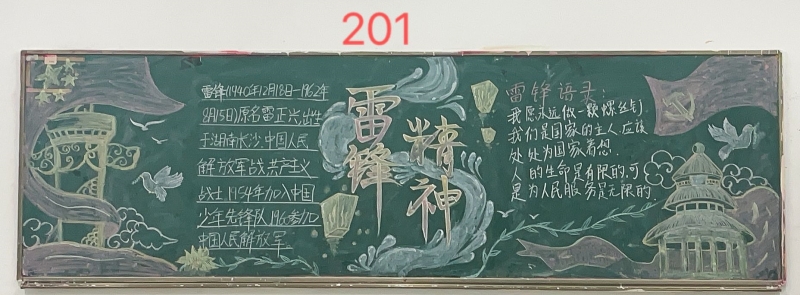 201
雷锋(1940年12月18日-1962年
8月15日)原名雷正兴,出生
于湖南长沙.中国人民
解放军战共产主义
战士1954年加入中国
少年先锋队,1960参加
中国人民解放军.
雷锋
精神
雷锋语录:
我愿永远做一颗螺丝钉.
我们是国家的主人,应该
处处为国家着想.
人的生命是有限的,可
是为人民服务是无限的.